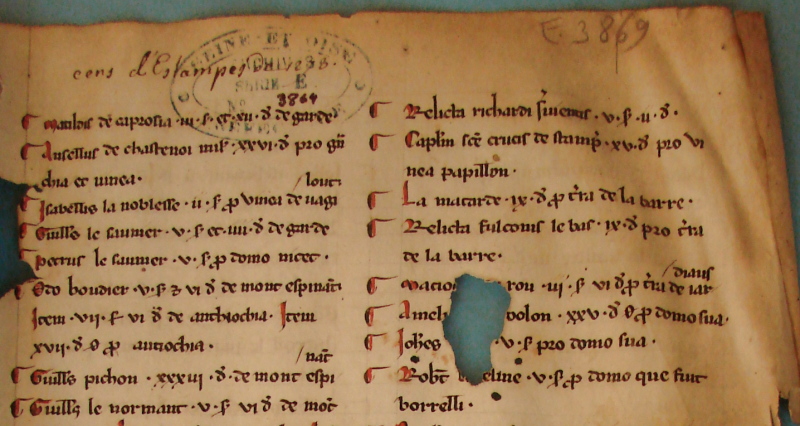 E. 3869
cens d'Estampes
SEINE ET OISE
ARCHIVES
SERIE E
3864
Matildis de caprosia · iii · s · et · xii · d de garde
Ansellus de chastenoi mil · xxvi · d pro
chia et vinea ·
Isabellis la noblesse · ii · s p vinea de vagi
Guills le saunier · v · s et · iiii · d de garde
Petrus le saunier · v · s p domo nicet ·
Odo boudier · v · s vi d de mont espinat
Item · vii · s vi d de anthiochia · Item
xvii · d p antiochia ·
Guills pichon · xxxvi · d · de mont espi
nat
Guills le normant · v · s vi d de
Relicta richardi · v · s · ii · d ·
Caplin sce crucis de stamp · xv · d pro vi
nea papillon ·
La macarde · ix · d p tra de la barre ·
Relicta fulconis le bas · ix · d pro tra
de la barre ·
rou · iii · s vi d p tra de iar
dians
Amel bolon · xxv · d p domo sua ·
Johes · v · s pro domo sua ·
Robt eline · v · s p domo que fuit
borrelli ·